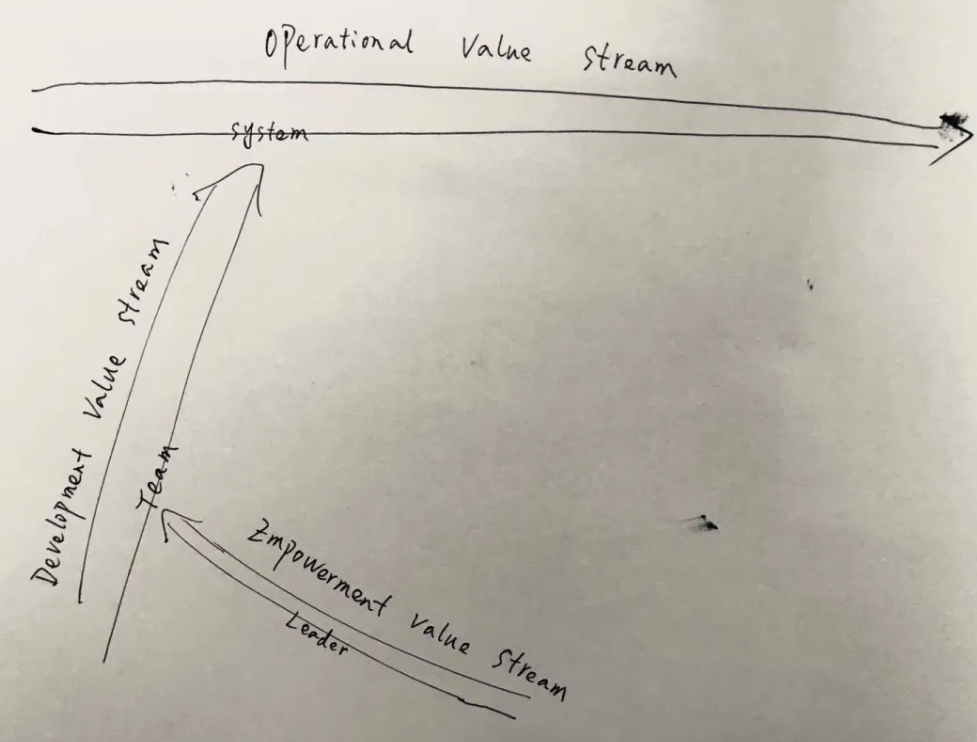 Operational Value Stream
system
Development Value Stream
Team
Empowerment value Stream
Leader